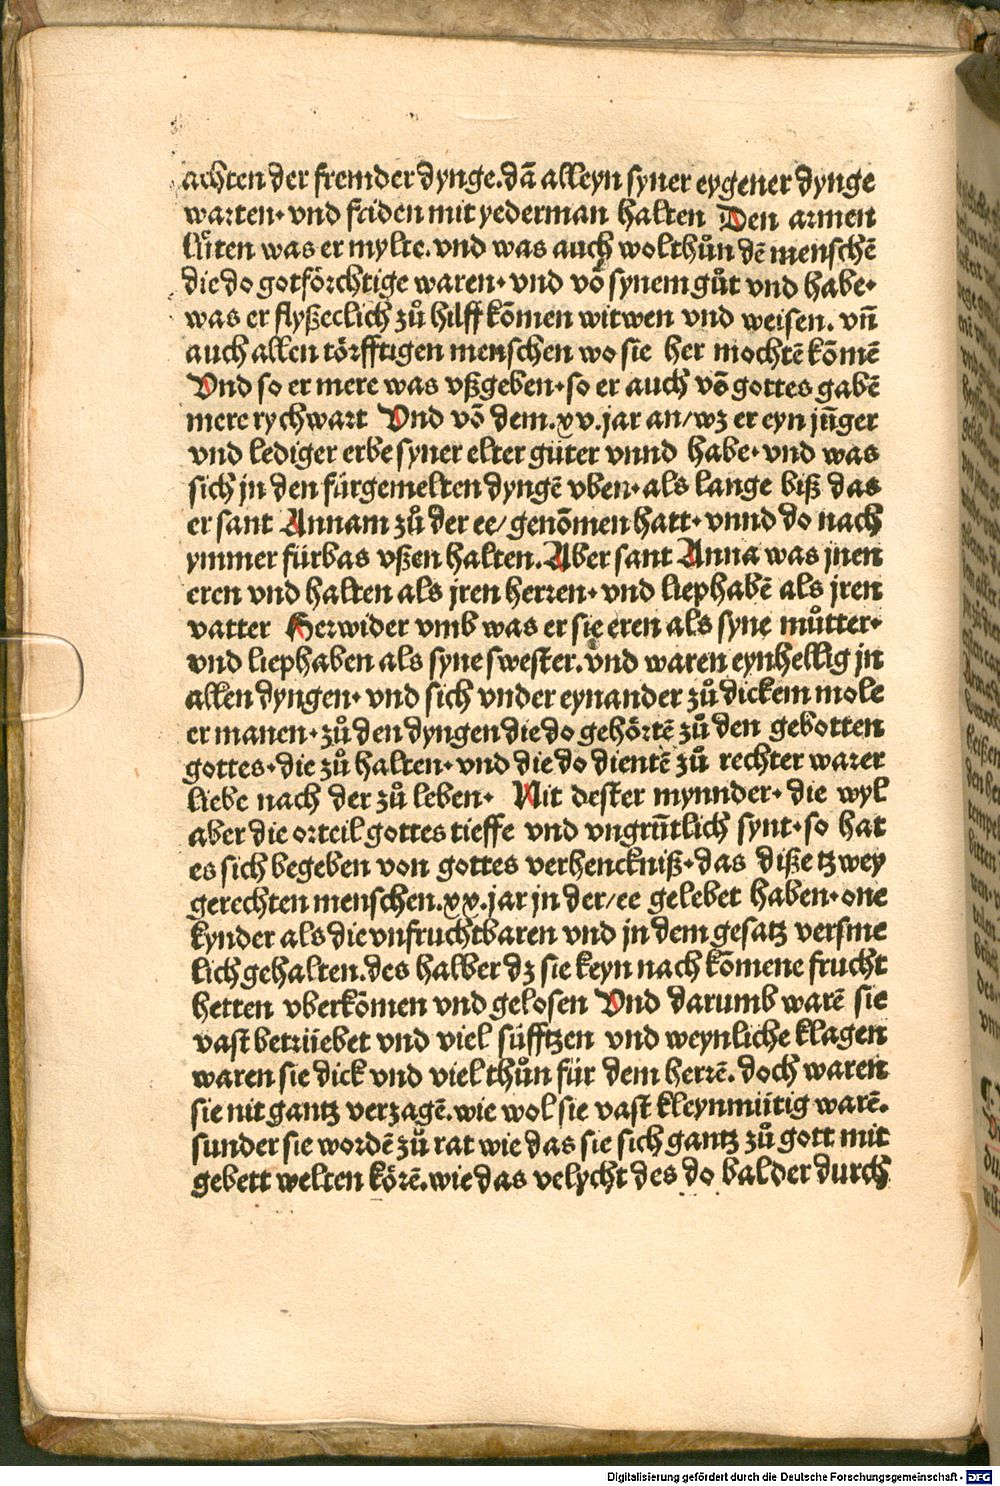 achten der fremder dynge. dā alleyn syner eygener dynge
warten· vnd friden mit yederman halten Den armen
lüten was er mylte. vnd was auch wolthůn dē menschē
die do gotförchtige waren· vnd vō synem gůt vnd habe·
was er flyßeclich zů hilff kōmen witwen vnd weisen. vn̄
auch allen törfftigen menschen wo sie her mochtē kōmē
Vnd so er mere was vßgeben· so er auch vō gottes gabē
mere rych wart Vnd vō dem .xv. jar an/ wz er eyn jūger
vnd lediger erbe syner elter güter vnnd habe· vnd was
sich jn den fürgemelten dyngē vben· als lange biß das
er sant Annam zů der ee/ genōmen hatt· vnnd do nach
ymmer fürbas vßen halten. Aber sant Anna was jnen
eren vnd halten als jren herren· vnd liephabē als jren
vatter Herwider vmb was er sie eren als syne můtter·
vnd liephaben als syne swester. vnd waren eynhellig jn
allen dyngen· vnd sich vnder eynander zů dickem mole
ermanen· zů den dyngen die do gehörtē zů den gebotten
gottes· die zů halten· vnd die do dientē zů rechter warer
liebe nach der zů leben· Nit dester mynnder· die wyl
aber die orteil gottes tieffe vnd vngrūtlich synt· so hat
es sich begeben von gottes verhenckniß· das diße tzwey
gerechten menschen .xx. jar jn der/ ee gelebet haben· one
kynder als die vnfruchtbaren vnd jn dem gesatz versme
lich gehalten. des halber dz sie keyn nach kōmene frucht
hetten vberkōmen vnd gelosen Vnd darumb warē sie
vast betrüebet vnd viel süfftzen vnd weynliche klagen
waren sie dick vnd viel thůn für dem herrē. doch waren
sie nit gantz verzagē. wie wol sie vast kleynmütig warē.
sunder sie wordē zů rat wie das sie sich gantz zů gott mit
gebett welten körē. wie das velycht des do balder durch
Digitalisierung gefördert durch die Deutsche Forschungsgemeinschaft - DFG